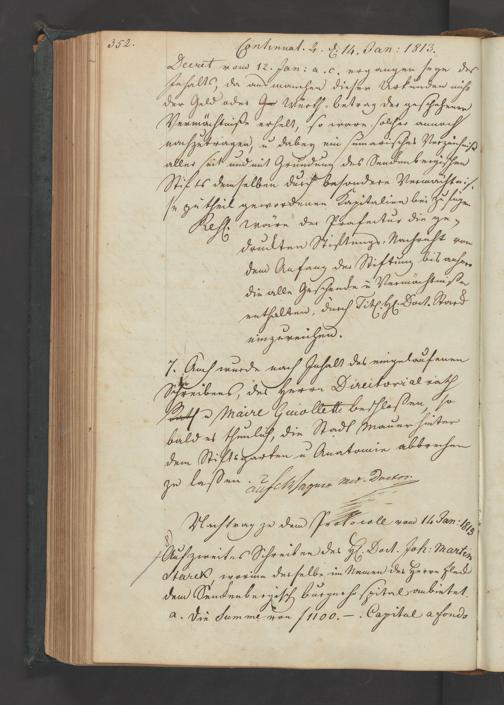 352.
Continuat. 2. d: 14. Jan: 1813.
Decret vom 12. Jan: a. c. ergangen seye des
Inhalts, da aus manchen dieser Urkunden nicht
der Geld oder Werths-betrag des geschehenen
Vermächtnißes erhelt, so wäre solcher annoch
nachzutragen, u dabey ein sumarisches Verzeichniß
aller seit und mit Gründung des Senckenbergischen
Stifts demselben durch besondere Vermächtniße
zutheil gewordenen Kapitalien beizufügen
Resl. wäre der Präfectur die ge-
druckten Stiftungs-Nachricht von
dem Anfang der Stiftung bis anhero
die alle Geschenke u Vermächtniße
enthalten, durch Tit. H. Doct. Starck
einzureichen.
7. Auch wurde nach Inhalt des eingelaufenen
Schreibens, des Herrn Directorial rath
u Maire Guiollett beschloßen, so
bald es thunlich, die Stadt Mauer hinter
dem Stiftsgarten u Anatomie abbrechen
zu laßen. med. Doctor.
Nachtrag zu dem Protocolle vom 14 Jan: 1813
Auf zweites Schreiben des H. Doct. Joh: Martin
Starck, worinn derselbe im Namen des Herrn
dem Senckenbergisch bürgerl. Spital anbietet.
a. Die Summe von f 1100. —. Capital a fondo